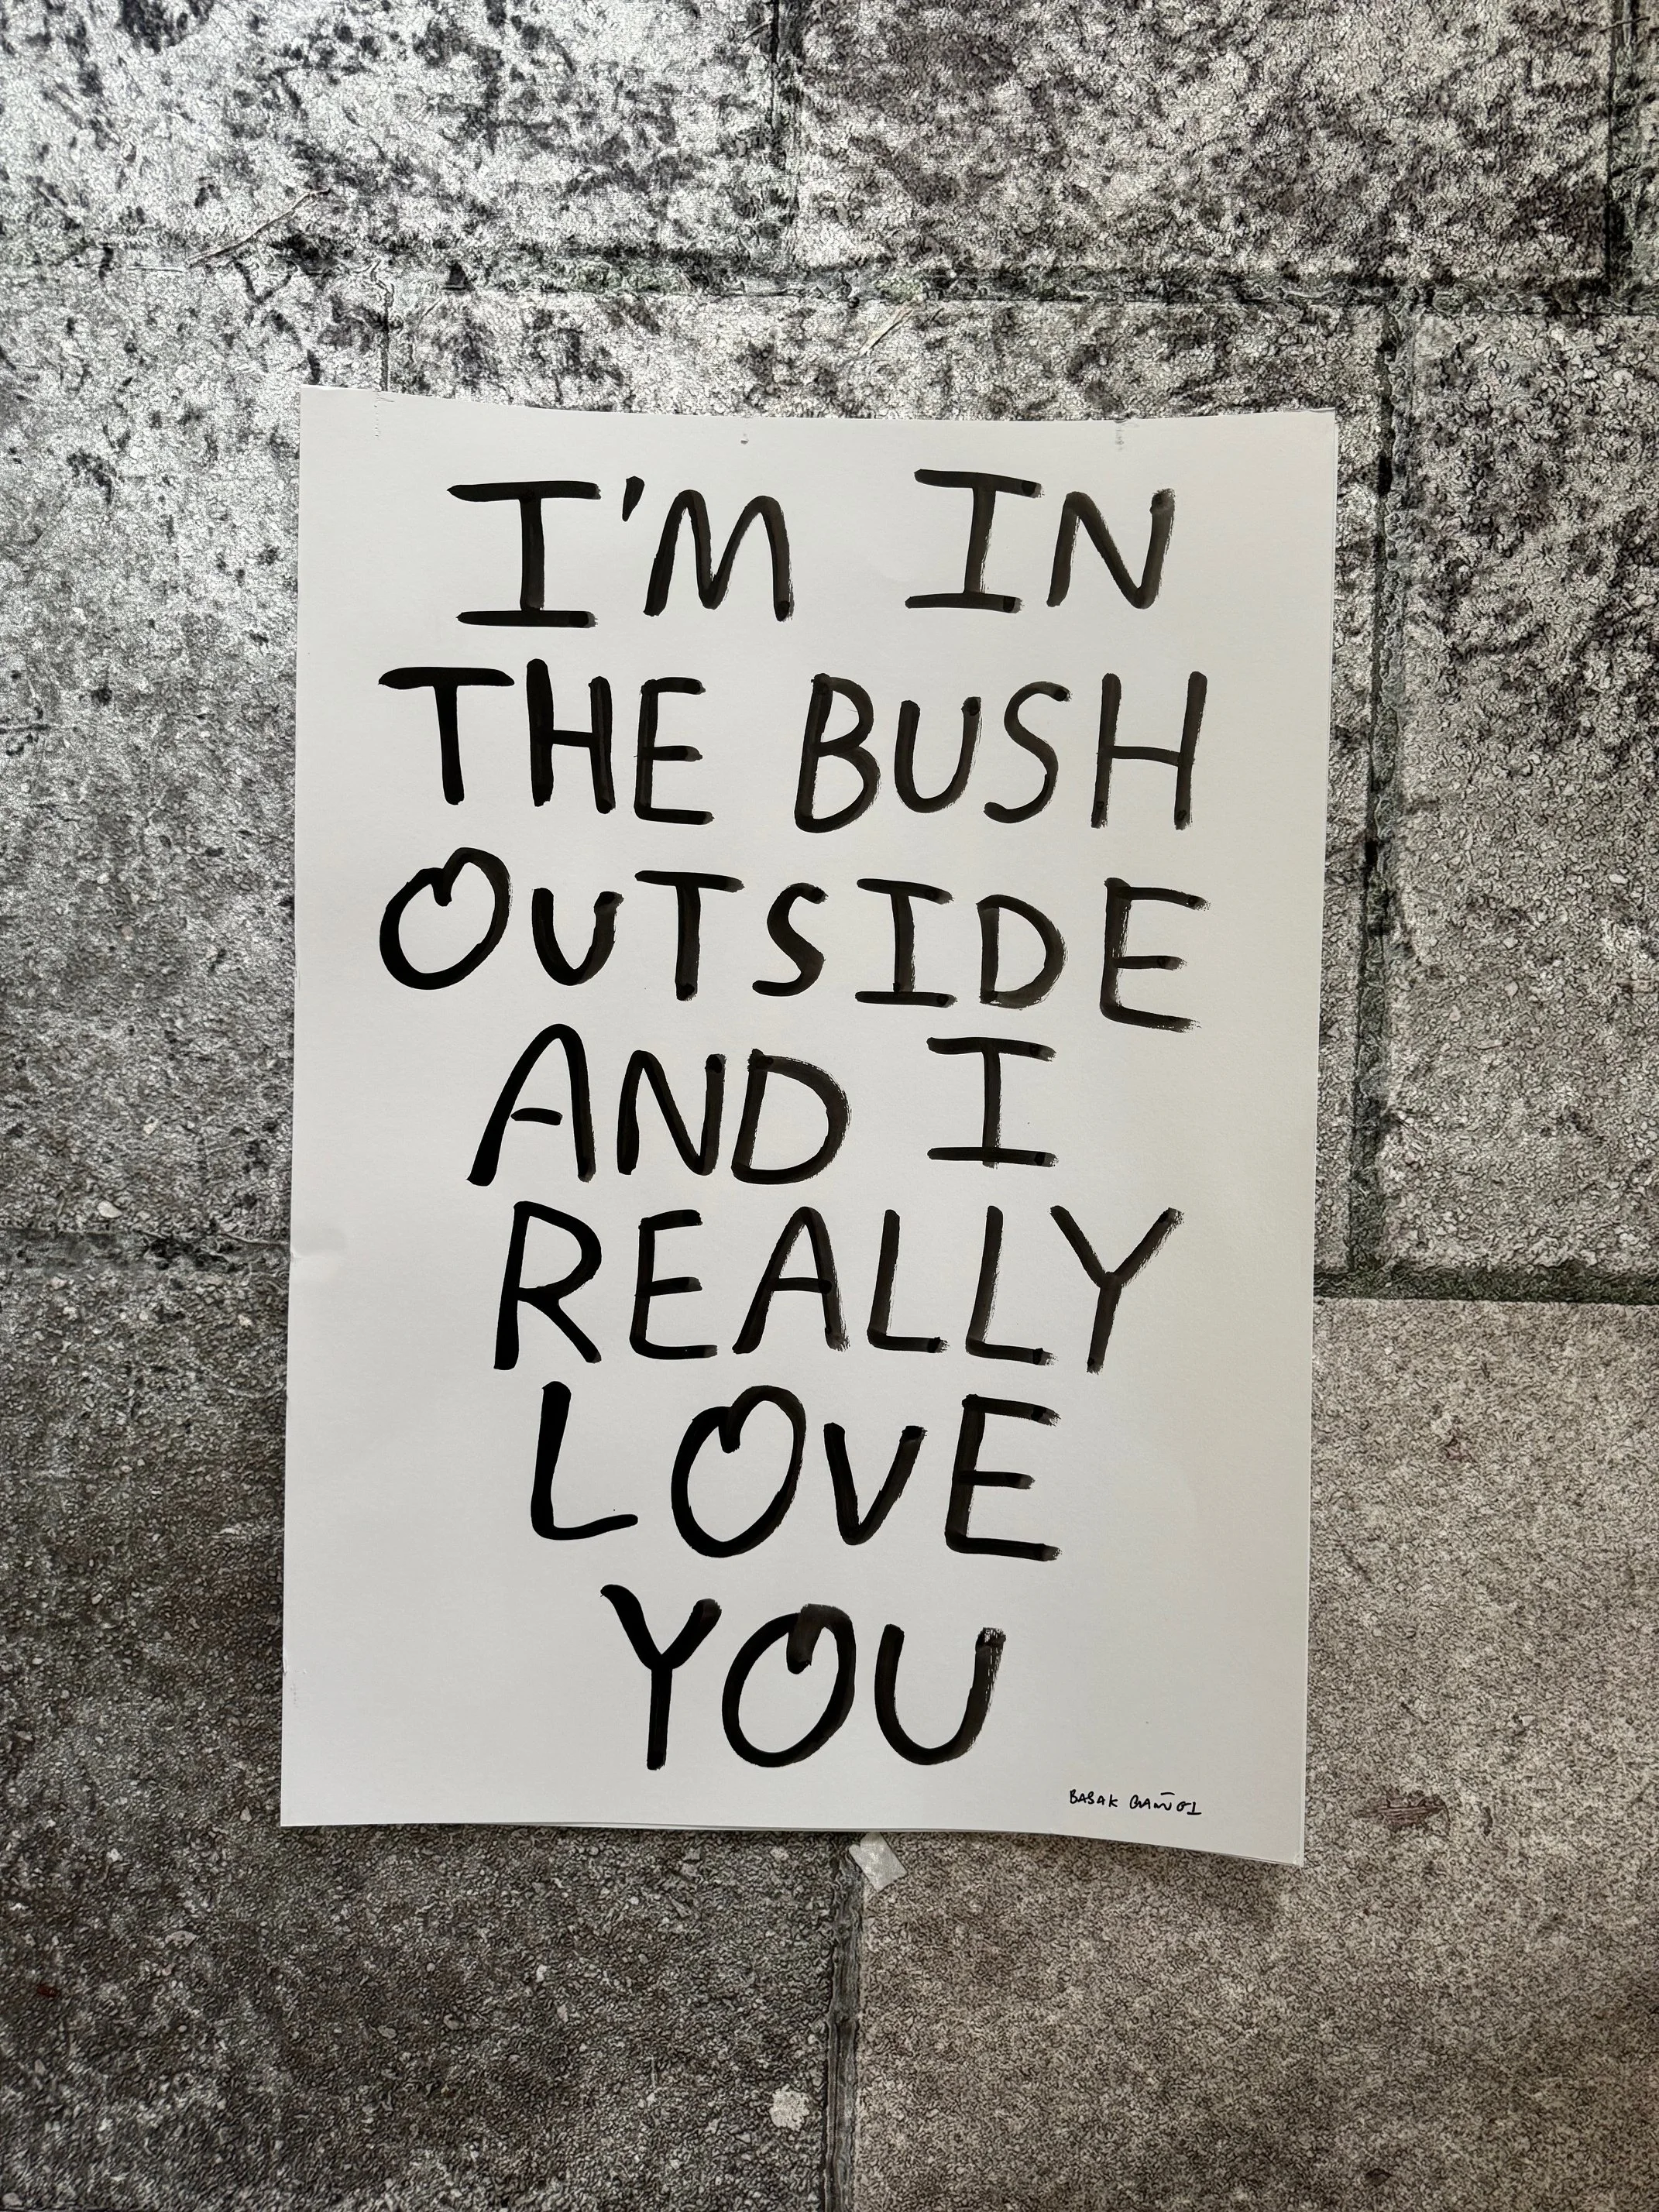 I'M IN
THE BUSH
OUTSIDE
AND I
REALLY
LOVE
YOU
BABAK